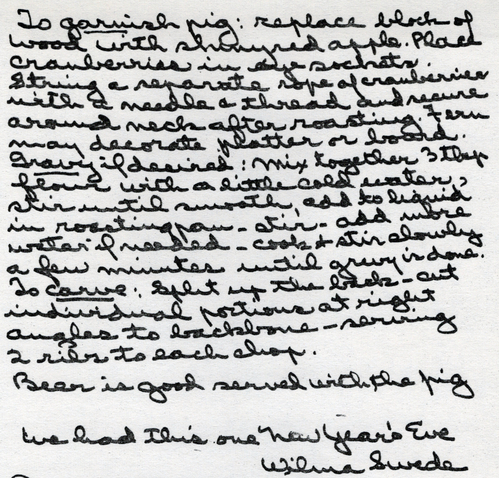 To garnish pig: replace block of
wood with shiny red apple. Place
cranberries in eye sockets.
String a separate rope of cranberries
with a needle & thread and secure
around neck after roasting. Fern
may decorate platter or board.
Gravy if desired: Mix together 3 tbsp
flour with a little cold water,
stir until smooth, add to liquid
in roasting pan - stir - add more
water if needed - cook & stir slowly
a few minutes until gravy is done.
To carve: Split up the back - cut
individual portions at right
angles to backbone - serving
2 ribs to each chop.
Beer is good served with the pig
We had this one New Year's Eve
Wilma Swede